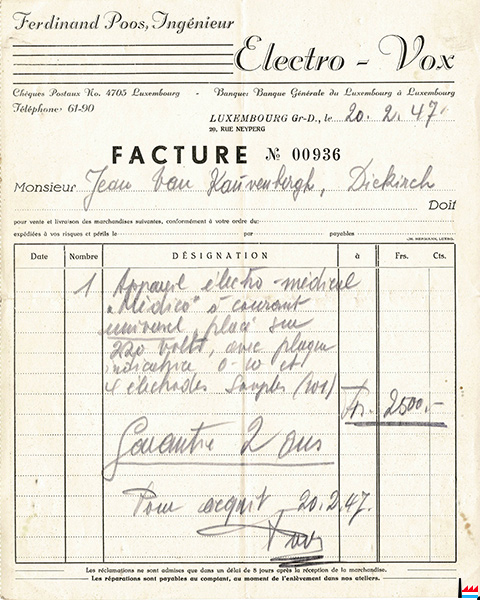 Ferdinand Poos, Ingénieur
Electro - Vox
Chéques Postaux No. 4705 Luxembourg - Banque: Banque Générale du Luxembourg à Luxembourg
Téléphone 61-90
LUXEMBOURG Gr-D., le 20. 2. 47.
29, RUE NEYPERG
FACTURE № 00936
Monsieur Jean Van Kauvenbergh, Diekirch
Doit
pour vente et livraison des marchandises suivantes, conformément à votre ordre du:
expédiées à vos risques et périls le par payables
Date Nombre DÉSIGNATION à Frs. Cts.
1 Appareil électro-médical
„Médico" s courant
universel, placé sur
220 volts, avec plaque
indicatrice 0-10 et
4 électrodes souples
Frs. 2500,-
Garantie 2 ans
Pour acquit 20.2.47.
Poos
Les réclamations ne sont admises que dans un délai de 8 jours après la réception de la marchandise.
Les réparations sont payables au comptant, au moment de l'enlèvement dans nos ateliers.